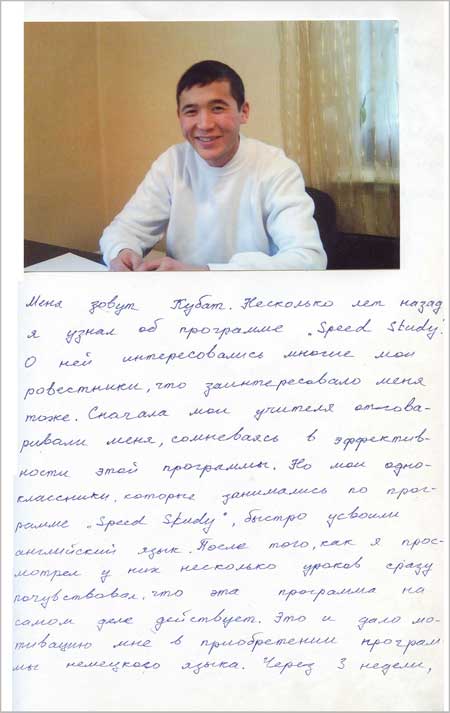 Меня зовут Кубат. Несколько лет назад
я узнал об программе „Speed Study".
О ней интересовались многие мои
ровестники, что заинтересовало меня
тоже. Сначала мои учителя отгова-
ривали меня, сомневаясь в эффектив-
ности этой программы. Но мои одно-
классники, которые занимались по прог-
рамме „Speed Study", быстро усвоили
английский язык. После того, как я прос-
мотрел у них несколько уроков сразу
почувствовал, что эта программа на
самом деле действует. Это и дало мо-
тивацию мне в приобретении програм
мы немецкого языка. Через 3 недели,